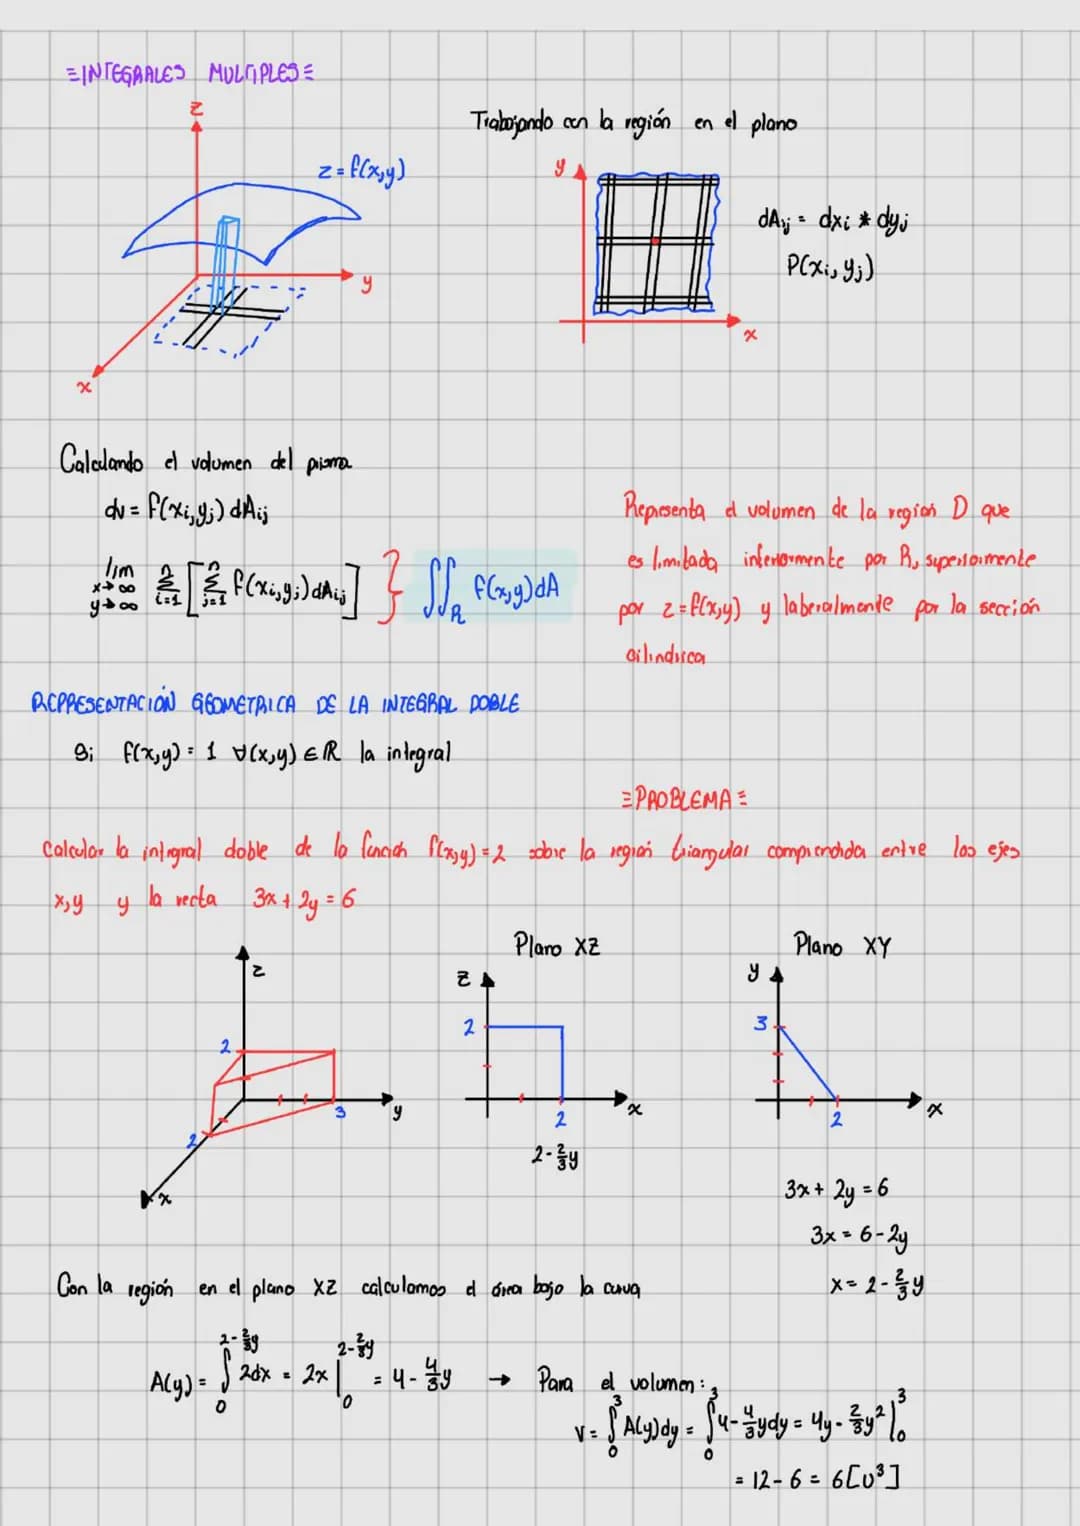 ≡INTEGRALES MULTIPLES≡
z
z = f(x,y)
y
x
Trabajando con la región en el plano
y
dAij = dxi * dyj
P(xi, yj)
x
Calculando el volumen del prisma
dv = f(xi,yj) dAij
lim x→∞ y→∞ Σ i=1 n [ Σ j=1 n f(xi,yj) dAij ] } ∬R f(x,y)dA
Representa el volumen de la región D que
es limitada inferiormente por R, superiormente
por z = f(x,y) y lateralmente por la sección
cilindrica
REPRESENTACIÓN GEOMETRICA DE LA INTEGRAL DOBLE
Si f(x,y) = 1 ∀(x,y) ∈ ℝ la integral
≡PROBLEMA≡
Calcular la integral doble de la función f(x,y) = 2 sobre la región triangular comprendida entre los ejes
x,y y la recta 3x + 2y = 6
z
2
3
y
2
x
Plano XZ
z
2
2
x
2 - 2/3 y
Plano XY
y
3
2
x
3x + 2y = 6
3x = 6 - 2y
x = 2 - 2/3 y
Con la región en el plano XZ calculamos el área bajo la curva
A(y) = ∫₀^(2-2/3y) 2dx = 2x |₀^(2-2/3y) = 4 - 4/3 y → Para el volumen:
V = ∫₀³ A(y)dy = ∫₀³ 4 - 4/3 y dy = 4y - 2/3 y² |₀³
= 12 - 6 = 6[U³]